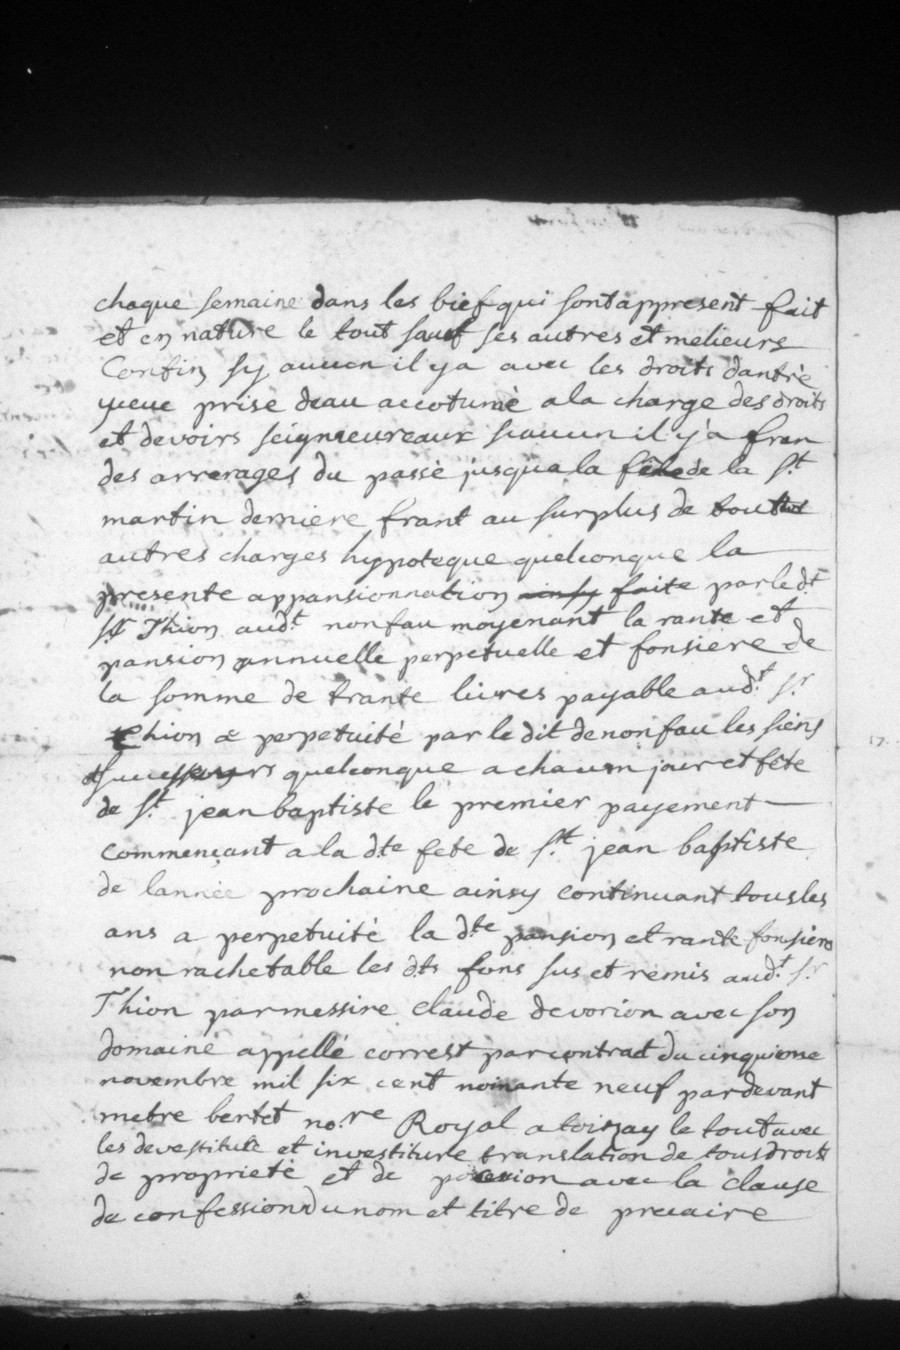 chaque semaine dans les bief qui sont appresent fait
et en nature le tout sauf ses autres et melieurs
Confins sy aucun il y a avec les droits dantrè
yseue prise deau accotumè a la charge des droits
et devoirs seigneureaux siaucun il y a fran
des arrerages du passè jusqua la fête de la St
martin derniere frant au surplus de tout
autres charges hypoteque quelconque la
presente appansionnation ainsy faite par le dt
Sr Thion audt nonfau moyenant la rante et
pansion annuelle perpetuelle et fonsiere de
la somme de trante livres payable audt Sr
Thion a perpetuité par le dit denonfau les siens
et successeurs quelconque a chacun jour et fête
de St jean baptiste le premier payement
commencant a la dte fete de St jean baptiste
de lannée prochaine ainsy continuant tous les
ans a perpetuité la dte pansion et rante fonsiere
non rachetable les dts fons sus et remis audt Sr
Thion par messire claude devorion avec son
domaine appellé correst par contrat du cinquieme
novembre mil six cent nonante neuf pardevant
metre bertet nore Royal a toissay le tout avec
les devestiture et investiture translation de tous droits
de proprieté et de posesion avec la clause
de confession du nom et titre de precaire